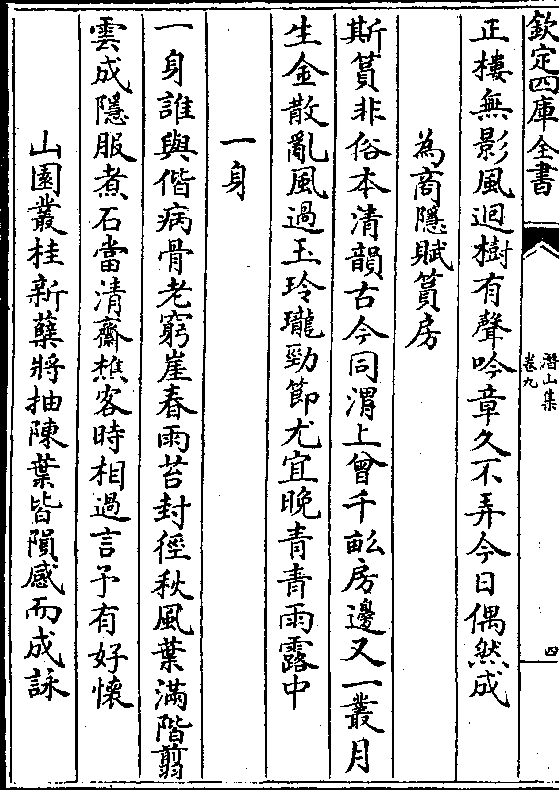 欽定四庫全書
潛山集
卷九
四
正樓無影風迴樹有聲吟章久不弄今日偶然成
為商隱賦篔房
斯篔非俗本清韻古今同渭上曾千畝房邊又一叢月
生金散亂風過玉玲瓏勁節尤宜晚青青雨露中
一身
一身誰與偕病骨老窮崖春雨苔封徑秋風葉滿階翦
雲成隱服煮石當清齋樵客時相過言予有好懷
山園叢桂新蘂將抽陳葉皆隕感而成詠